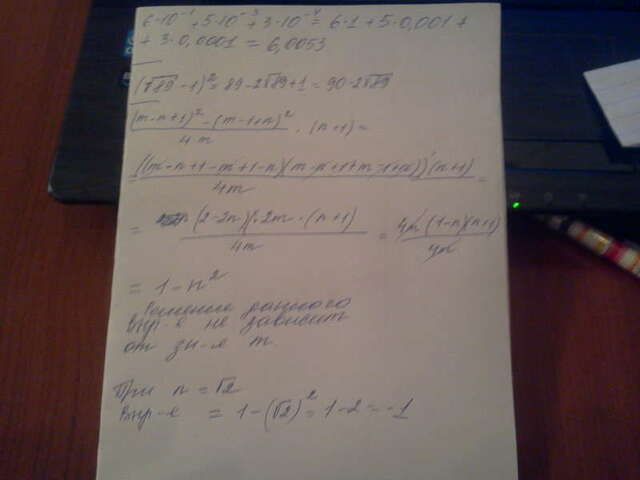 6·10⁻¹ + 5·10⁻³ + 3·10⁻⁴ = 6·1 + 5·0,001 +
+ 3·0,0001 = 6,0053
(√89 - 1)² = 89 - 2√89 + 1 = 90 - 2√89
(m-n+1)² - (m-1+n)² / 4m · (n+1) =
((m-n+1-m+1-n)(m-n+1+m-1+n))(n+1) / 4m =
= (2-2n)·2m·(n+1) / 4m = 4m(1-n)(n+1) / 4m
= 1 - n²
Решение данного
выр-я не зависит
от зн-я m.
При n = √2
выр-е = 1 - (√2)² = 1 - 2 = -1